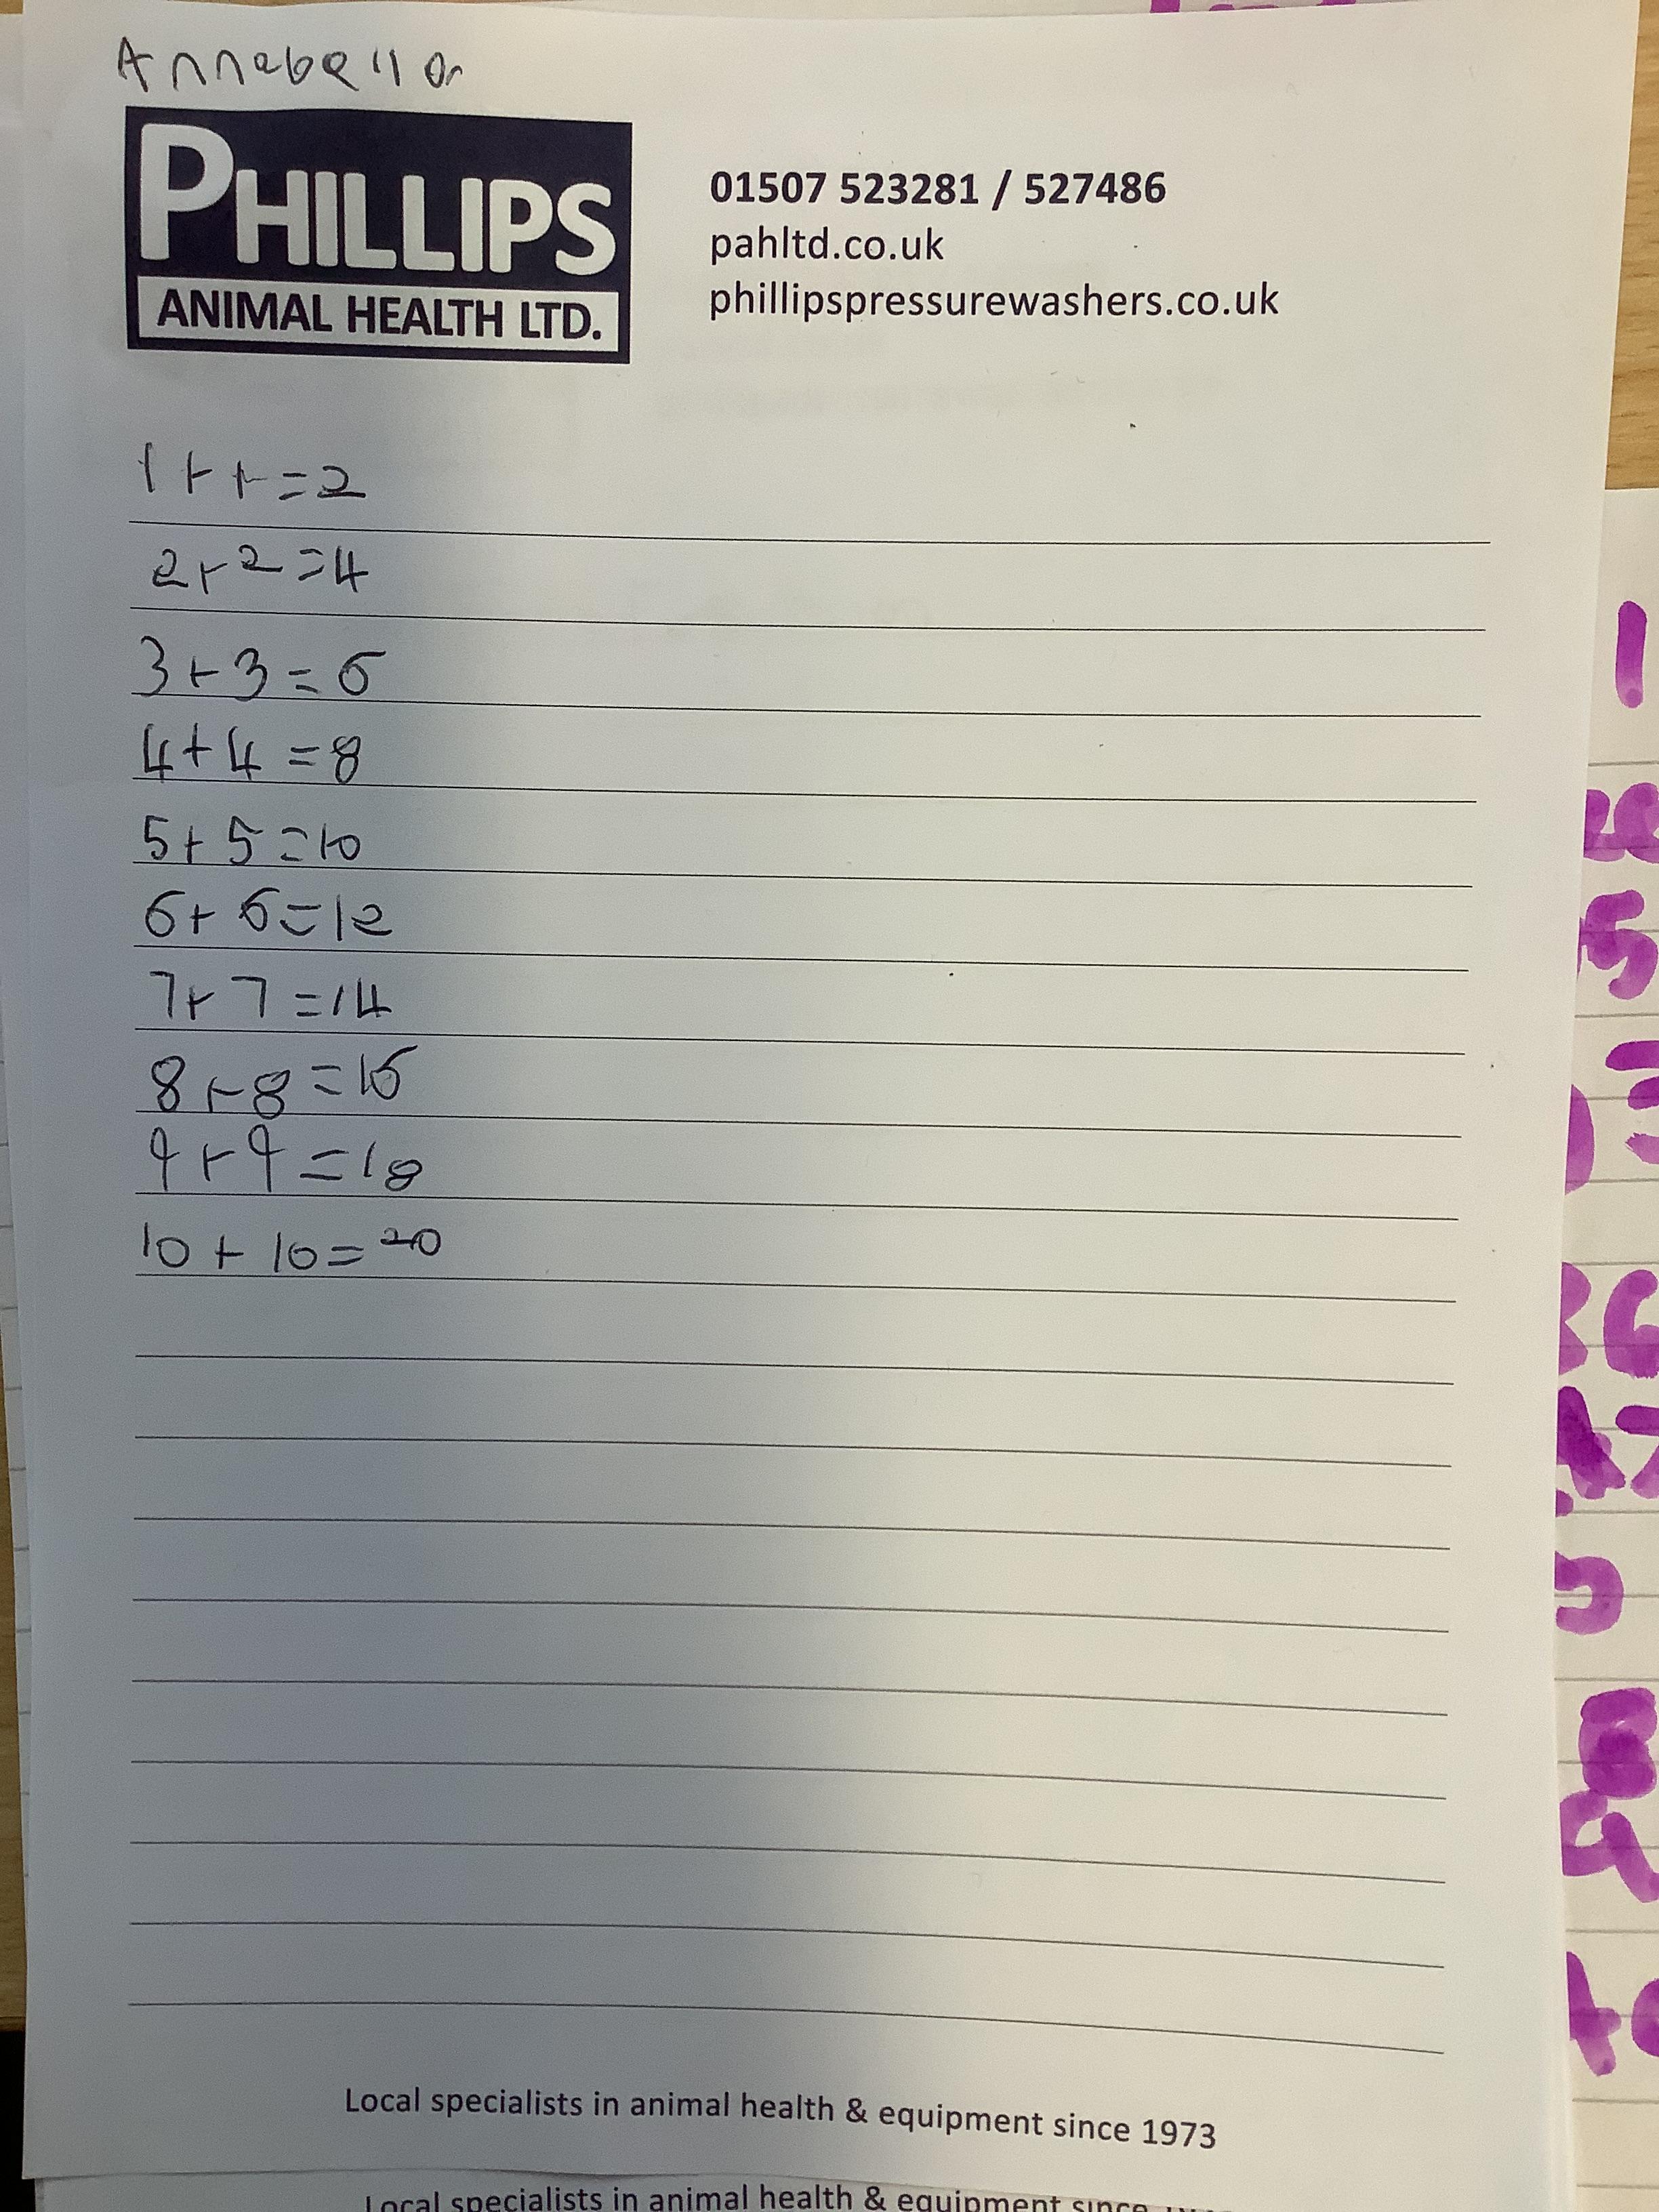 Annabella
PHILLIPS
ANIMAL HEALTH LTD.
01507 523281 / 527486
pahltd.co.uk
phillipspressurewashers.co.uk
1+1=2
2+2=4
3+3=6
4+4=8
5+5=10
6+6=12
7+7=14
8+8=16
9+9=18
10+10=20
Local specialists in animal health & equipment since 1973
Local specialists in animal health & equipment since